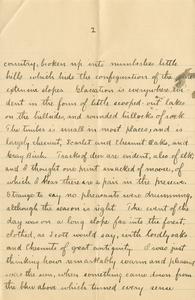 2
country, broken up into numberless little
hills which hide the configuration of the
extensive slopes. Glaciation is everywhere evi-
dent in the form of little scooped-out lakes
on the hillsides, and rounded hillocks of rock.
The timber is small in most places, and is
largely chesnut, Scarlet and Chestnut Oaks, and
Gray Birch. Tracks of deer are evident, also of elk,
and I thought one print smacked of moose, of
which I hear there are a pair on the preserve.
Strange to say, no pheasants were drumming,
although the season is right. The event of the
day was on a long slope far into the forest,
clothed, as Scott would say, with lordly oaks
and chesnuts of great antiquity. I was just
thinking how remarkably warm and pleasant
was the sun, when something came down from
the blue above which turned every sense